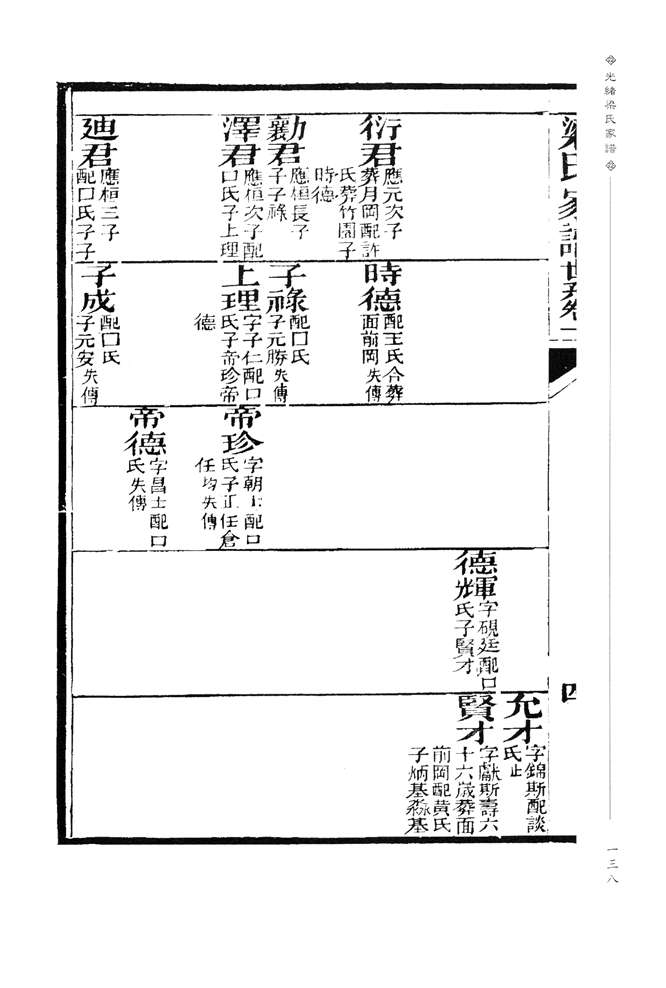 光緒梁氏家譜
梁氏家譜世系卷一
四
一三八
衍君
應元次子
葬月岡配許
氏葬竹園子
時德
勷君
應桓長子
子子祿
澤君
應桓次子配
口氏子上理
廸君
應桓三子
配口氏子子
時德
配王氏合葬
面前岡失傳
子祿
配口氏
子元勝失傳
上理
字子仁配口
氏子帝珍帝
德
子成
配口氏
子元安失傳
帝珍
字朝士配口
氏子正任倉
任均失傳
帝德
字昌士配口
氏失傳
德輝
字硯廷配口
氏子賢才
允才
字錦斯配談
氏止
賢才
字獻斯壽六
十六歲葬面
前岡配黃氏
子炳基淼基